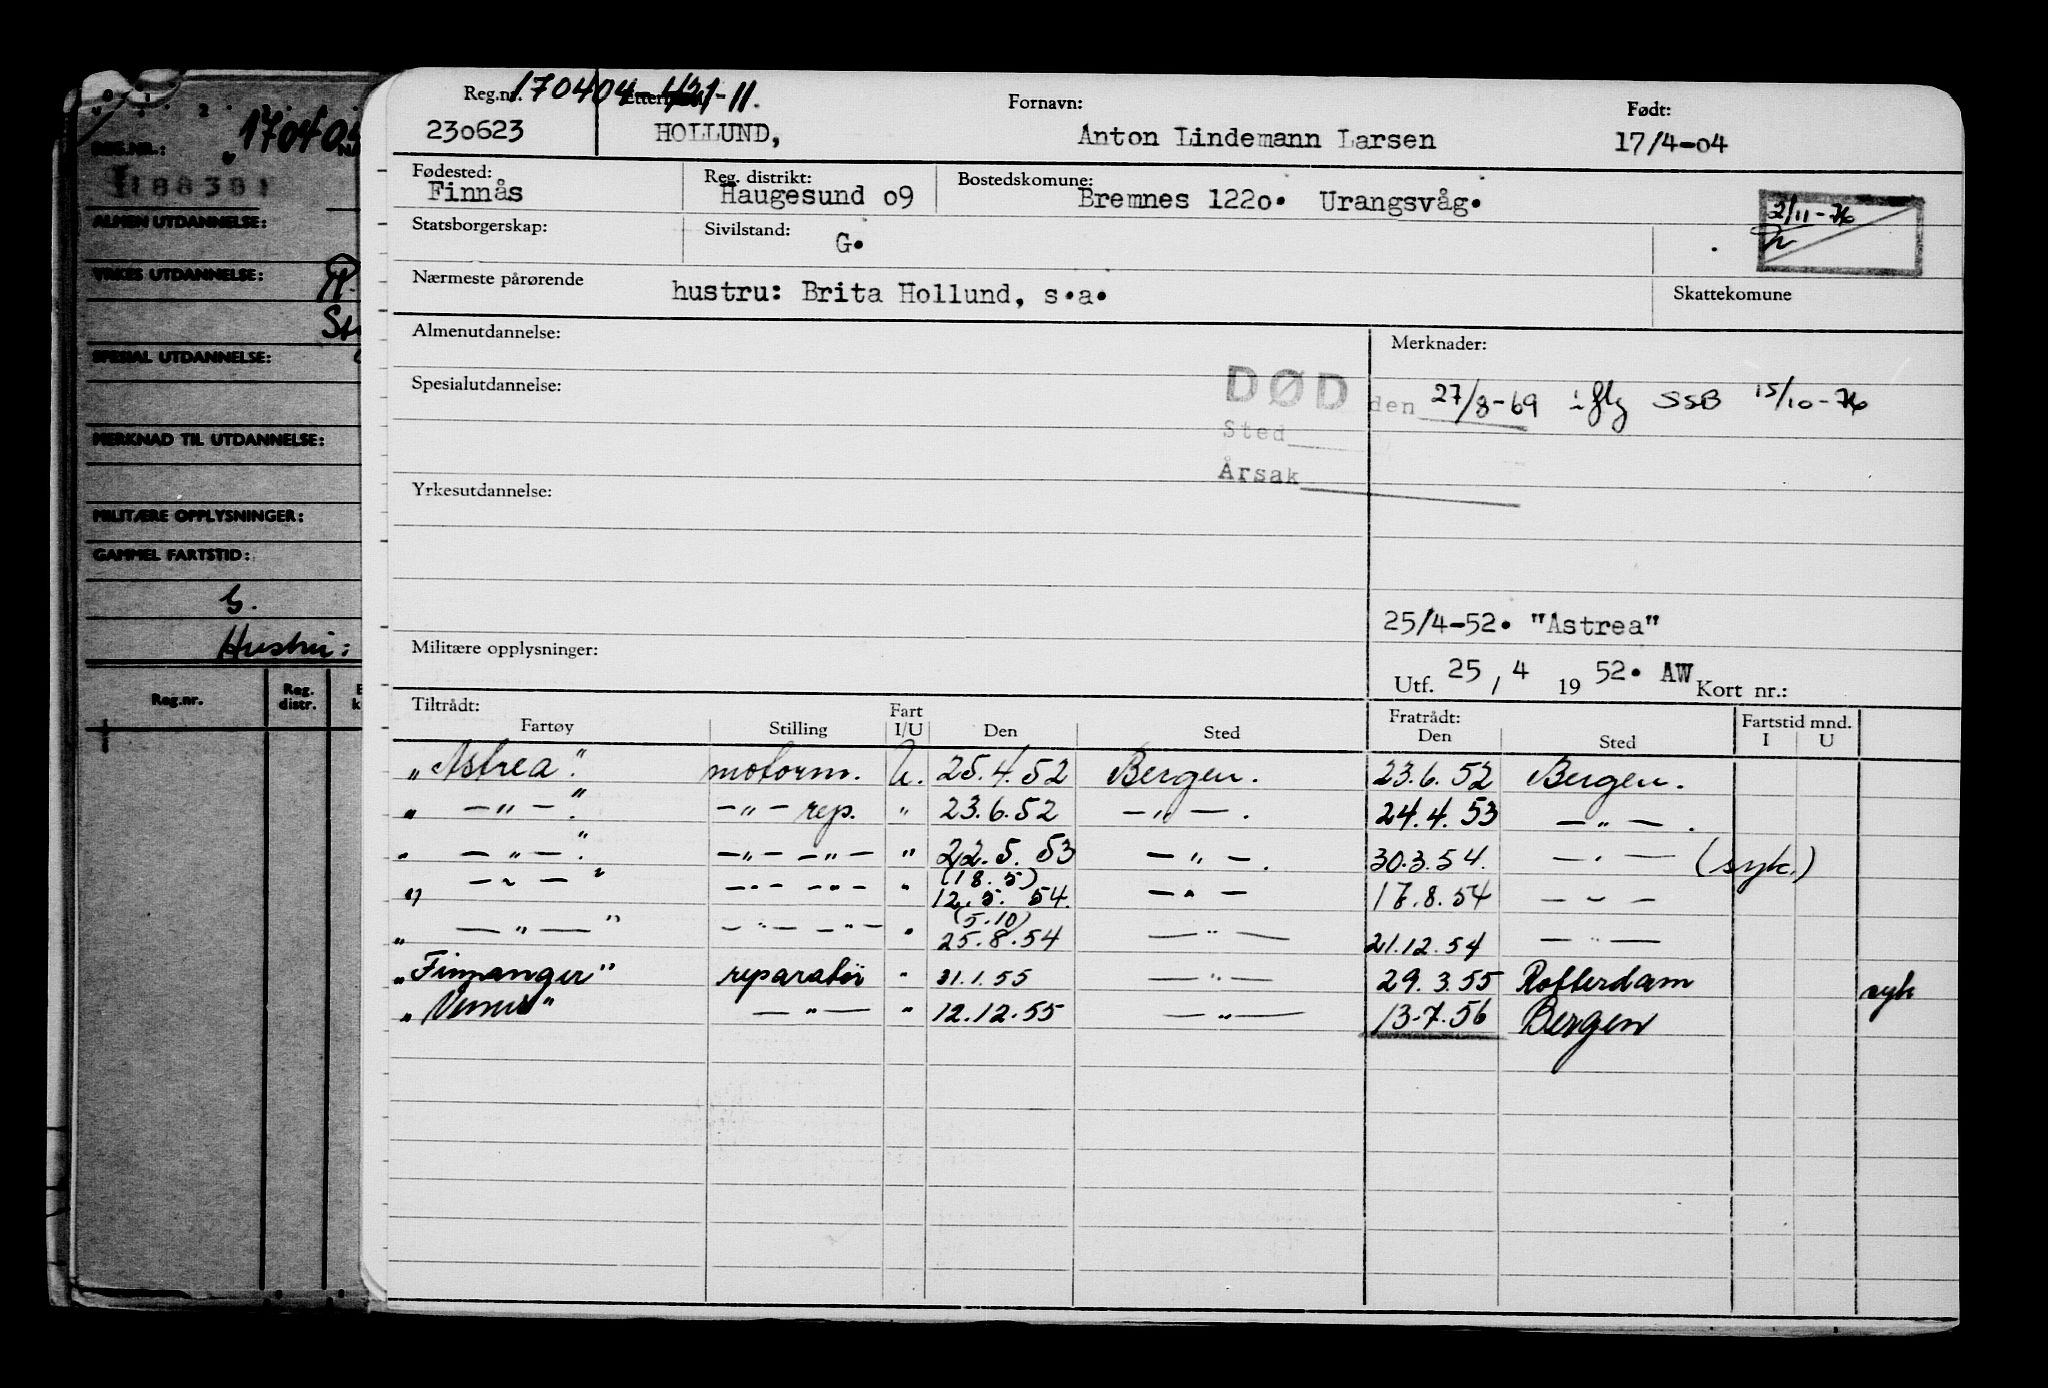 170404
REG.NR.:
188381
ALMEN UTDANNELSE:
YRKES UTDANNELSE:
SPESIAL UTDANNELSE:
MERKNAD TIL UTDANNELSE:
MILITÆRE OPPLYSNINGER:
GAMMEL FARTSTID:
G.
Hustru:
Reg.nr. Reg. distr.
Reg.nr. 170404-421-11. Fornavn: Født:
230623 HOLLUND, Anton Lindemann Larsen 17/4-o4
Fødested: Reg. distrikt: Bostedskomune:
Finnås Haugesund o9 Bremnes 122o. Urangsvåg.
2/11-76
Statsborgerskap: Sivilstand: G.
Nærmeste pårørende hustru: Brita Hollund, s.a. Skattekomune
Almenutdannelse: Merknader:
Spesialutdannelse: DØD den 27/8-69 iflg SSB 15/10-76
Sted
Årsak
Yrkesutdannelse:
25/4-52. "Astrea"
Militære opplysninger: Utf. 25 / 4 19 52. AW Kort nr.:
Tiltrådt: Fart Fratrådt: Fartstid mnd.
Fartøy Stilling I/U Den Sted Den Sted I U
"Astrea". motorm. U. 25.4.52 Bergen. 23.6.52 Bergen.
" — " — ". — " — rep. " 23.6.52 — " — . 24.4.53 — " — .
" — " — ". — " — — " — " 22.5.53 — " — . 30.3.54. — " — (syk.)
(18.5)
" — " — " — " — — " — " 12.5.54. — " — 17.8.54 — " —
(5.10)
" — " — " — " — — " — " 25.8.54 — " — 21.12.54 — " —
"Finnanger" reparatør " 31.1.55 — " — 29.3.55 Rotterdam syk
"Venus" — " — " 12.12.55 — " — 13-7.56 Bergen